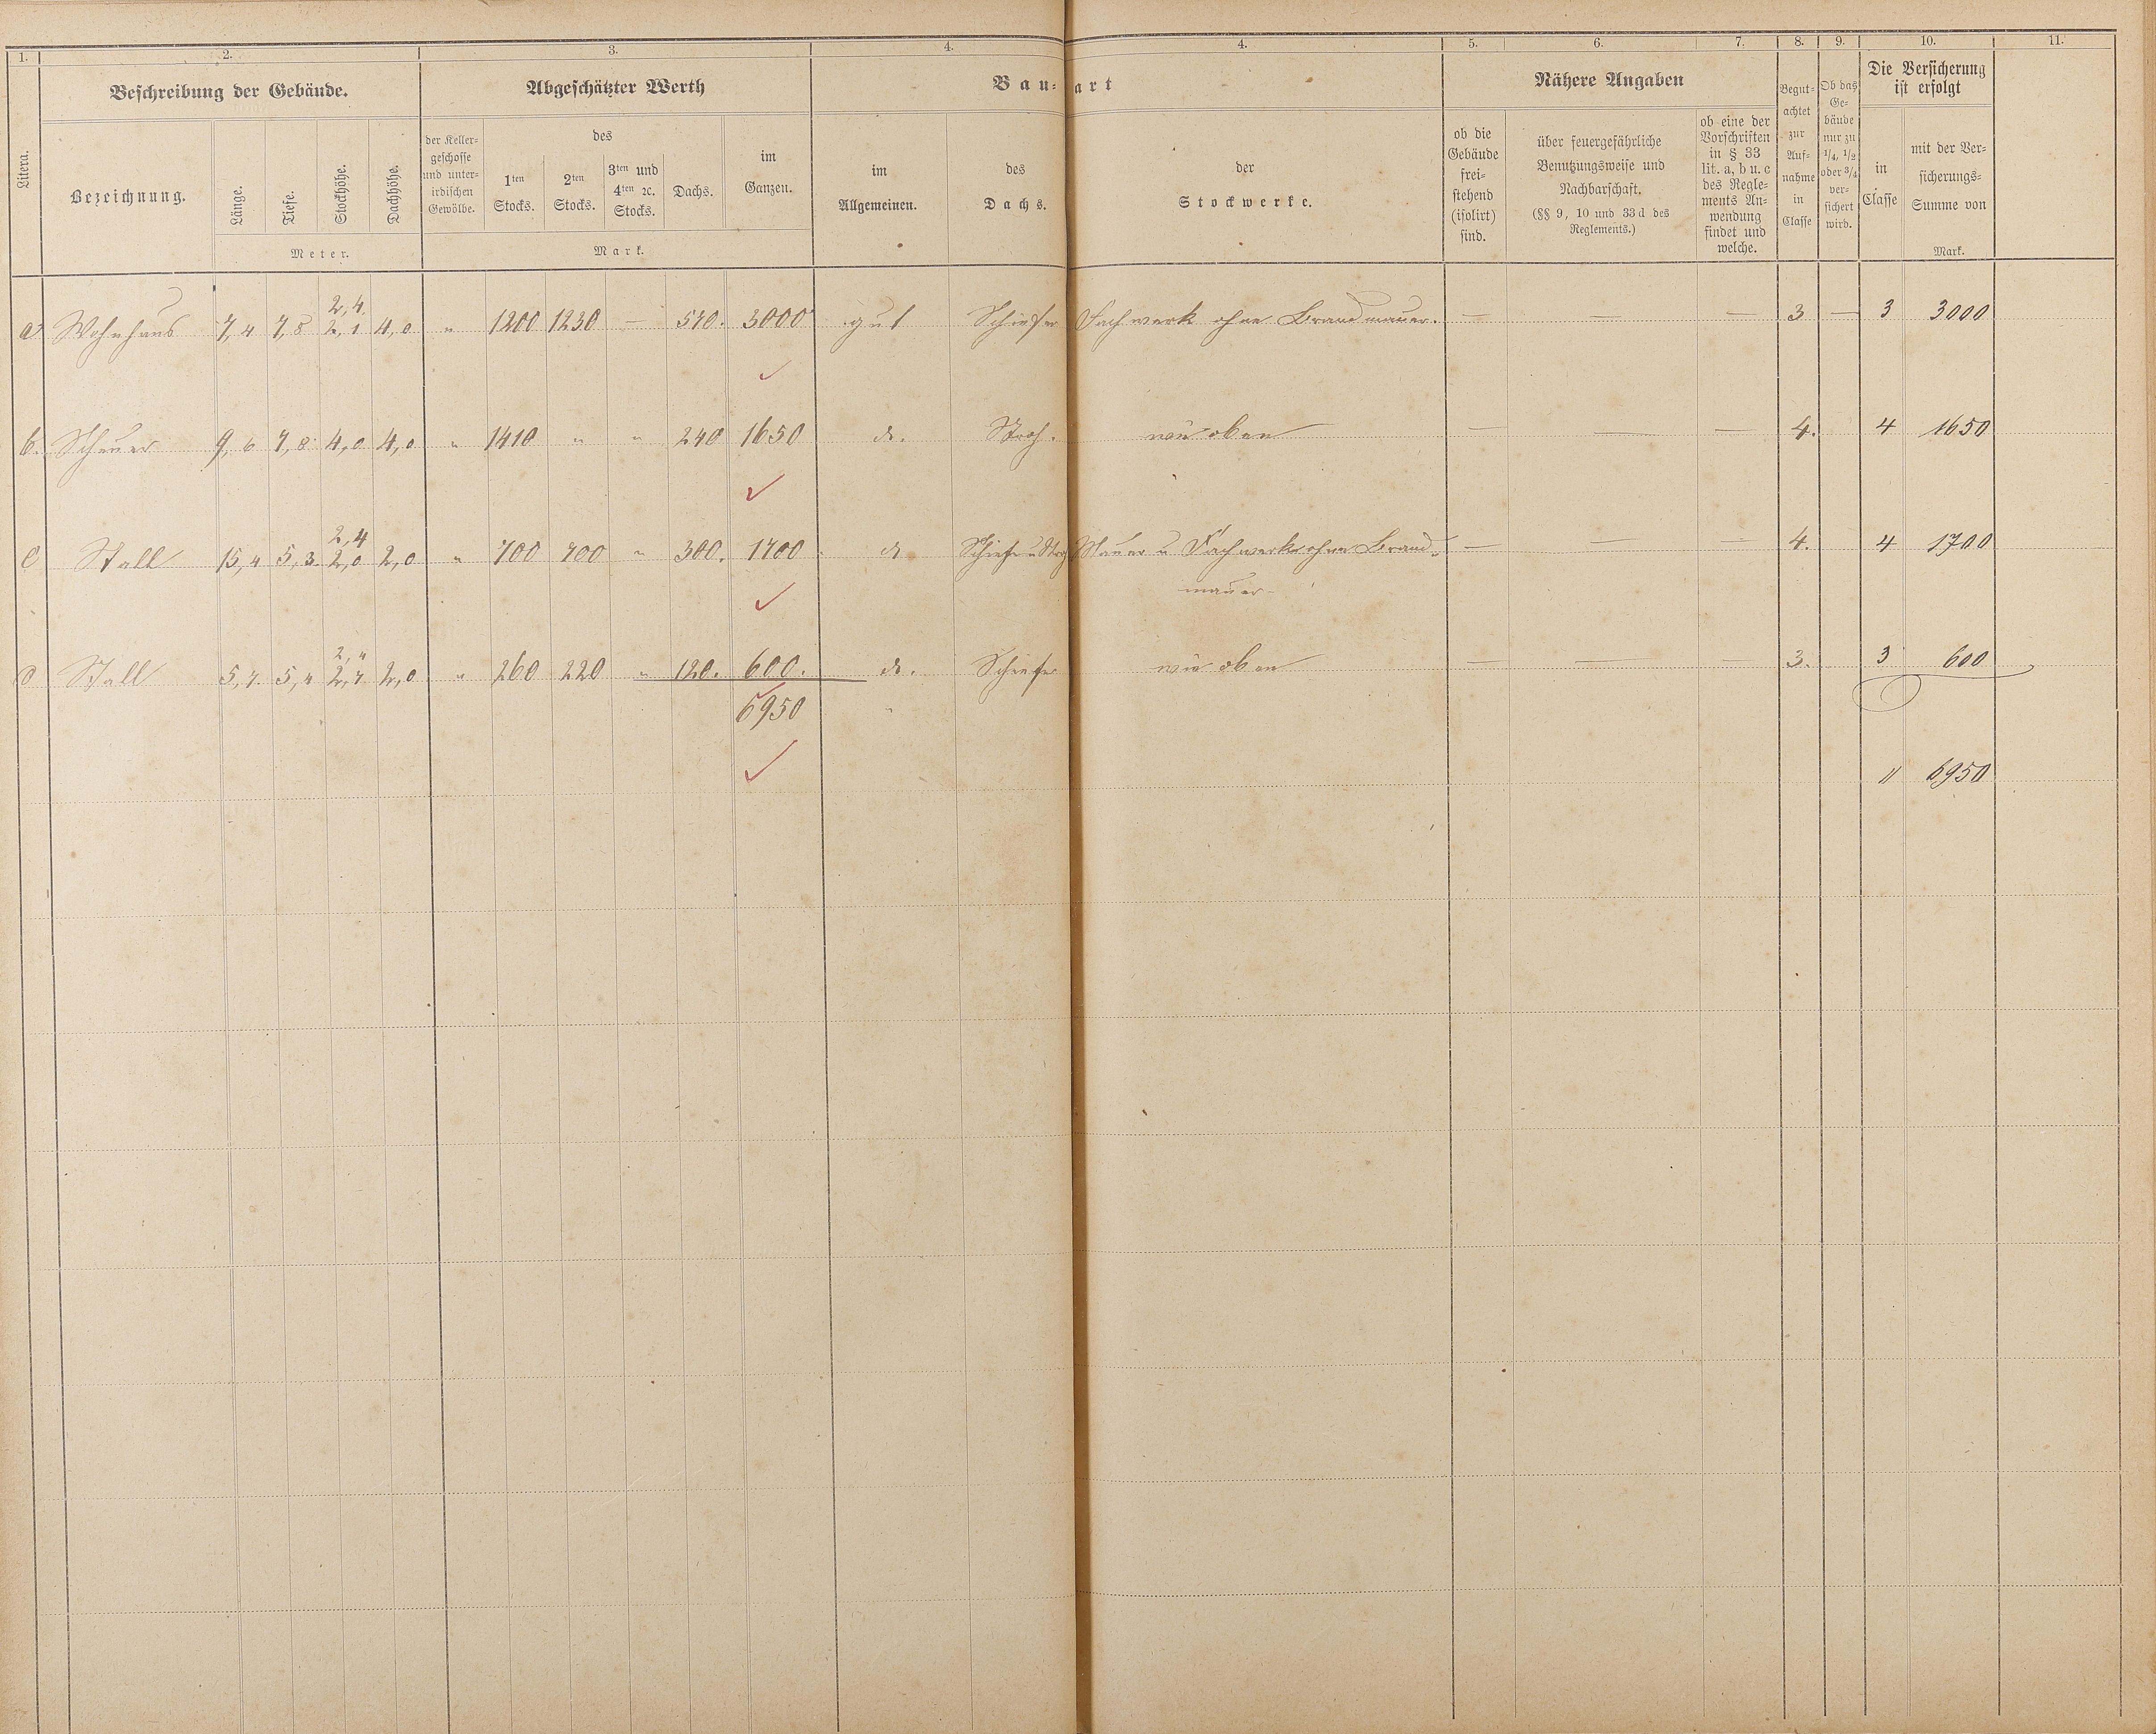 1. 2. 3. 4. 4. 5. 6. 7. 8. 9. 10. 11.
Litera.
Beschreibung der Gebäude.
Bezeichnung.
Länge.
Tiefe.
Stockhöhe.
Dachhöhe.
Meter.
Abgeschätzter Werth
der Keller-
geschosse
und unter-
irdischen
Gewölbe.
des
1ten
Stocks.
2ten
Stocks.
3ten und
4ten ꝛc.
Stocks.
Dachs.
im
Ganzen.
Mark.
Bau-art
im
Allgemeinen.
des
Dachs.
der
Stockwerke.
Nähere Angaben
ob die
Gebäude
frei-
stehend
(isolirt)
sind.
über feuergefährliche
Benutzungsweise und
Nachbarschaft.
(§§ 9, 10 und 33d des
Reglements.)
ob eine der
Vorschriften
in § 33
lit. a, b u. c
des Regle-
ments An-
wendung
findet und
welche.
Begut-
achtet
zur
Auf-
nahme
in
Classe
Ob das
Ge-
bäude
nur zu
1/4, 1/2
oder 3/4
ver-
sichert
wird.
Die Versicherung
ist erfolgt
in
Classe
mit der Ver-
sicherungs-
Summe von
Mark.
2,4.
a Wohnhaus 7,4 7,8 2,1 4,0 " 1200 1230 — 570. 3000 gut Schiefer Fachwerk ohne Brandmauer. — — — 3 — 3 3000
b. Scheuer 9,6 7,8 4,0 4,0 " 1410 " " 240 1650 do. Stroh. wie oben — — — 4. 4 1650
2,4
c Stall 15,4 5,3. 2,0 2,0 " 700 700 " 300. 1700 do Schiefer u Stroh Mauer u Fachwerk ohne Brand- — — — 4. 4 1700
mauer
2,4
d Stall 5,7. 5,4 2,7 2,0 " 260 220 " 120. 600. do. Schiefer wie oben — — — 3. 3 600
6950 "
" 6950